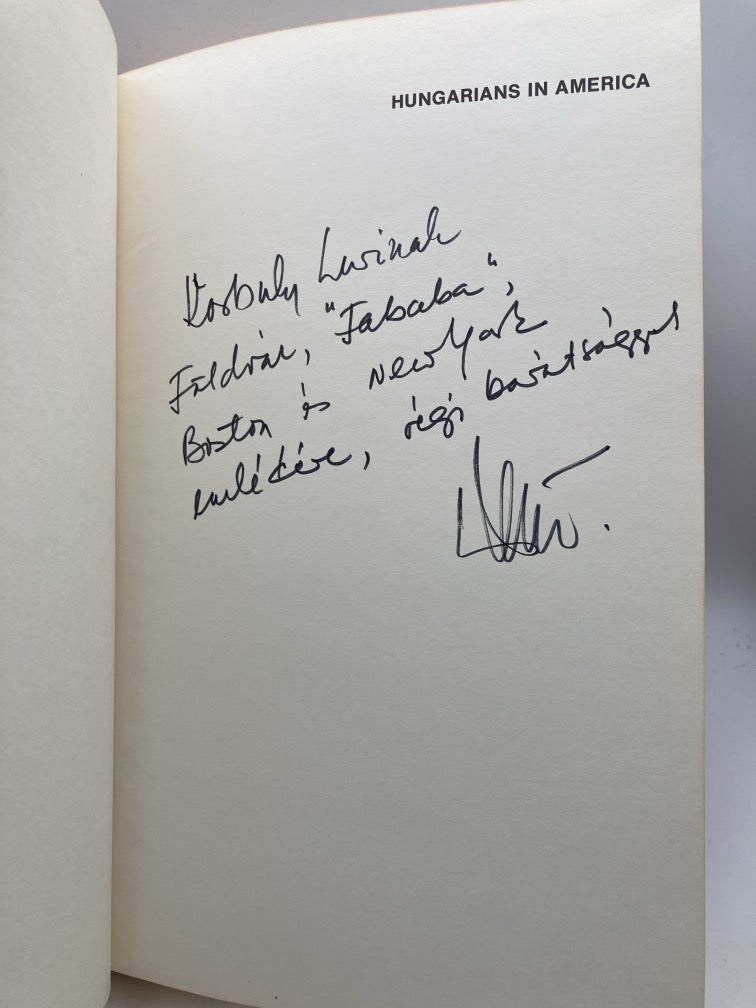 HUNGARIANS IN AMERICA
Korbuly Lucinak
Földvár, "Fababa",
Boston és New York
emlékére, régi barátsággal